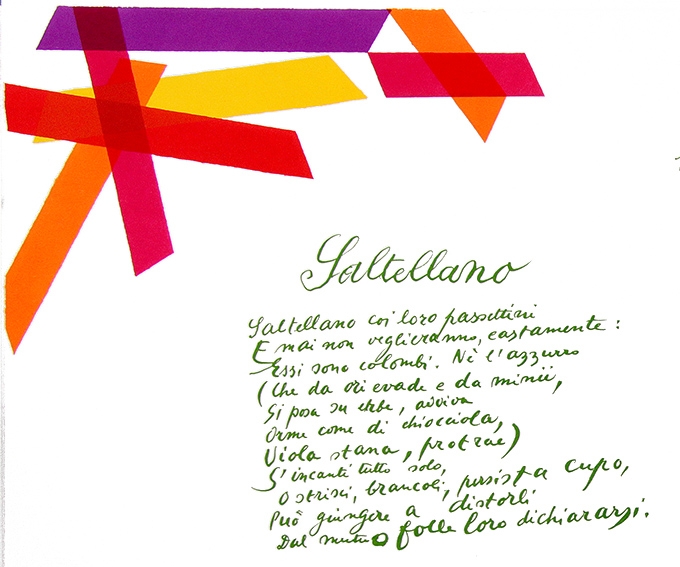 Saltellano
Saltellano coi loro passettini
E mai non veglieranno, castamente:
Essi sono colombi. Nè l'azzurro
(Che da ori evade e da minii,
Si posa su erbe, avviva
Orme come di chiocciola,
Viola stana, protrae)
S'incanti tutto solo,
O strisci, brancoli, persista cupo,
Può giungere a distorli
Dal mutuo folle loro dichiararsi.